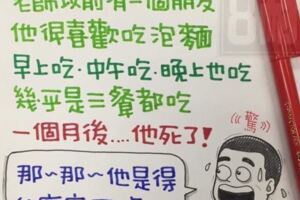 老師以前有一個朋友
他很喜歡吃泡麵
早上吃·中午吃·晚上也吃
幾乎是三餐都吃
一個月後....他死了!
驚
那~那~他是得